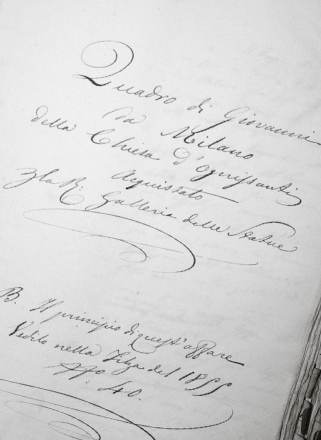 Quadro di Giovanni
da Milano
della Chiesa d'Ognissanti
Acquistato
R. Galleria delle Statue
B. Il principio di quest'affare
Vedilo nella Filza del 18
No. 40.